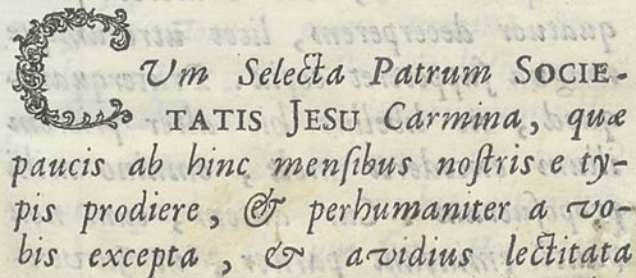 CUm Selecta Patrum SOCIE-
TATIS JESU Carmina, quæ
paucis ab hinc menſibus noſtris e ty-
pis prodiere, & perhumaniter a vo-
bis excepta, & avidius lectitata